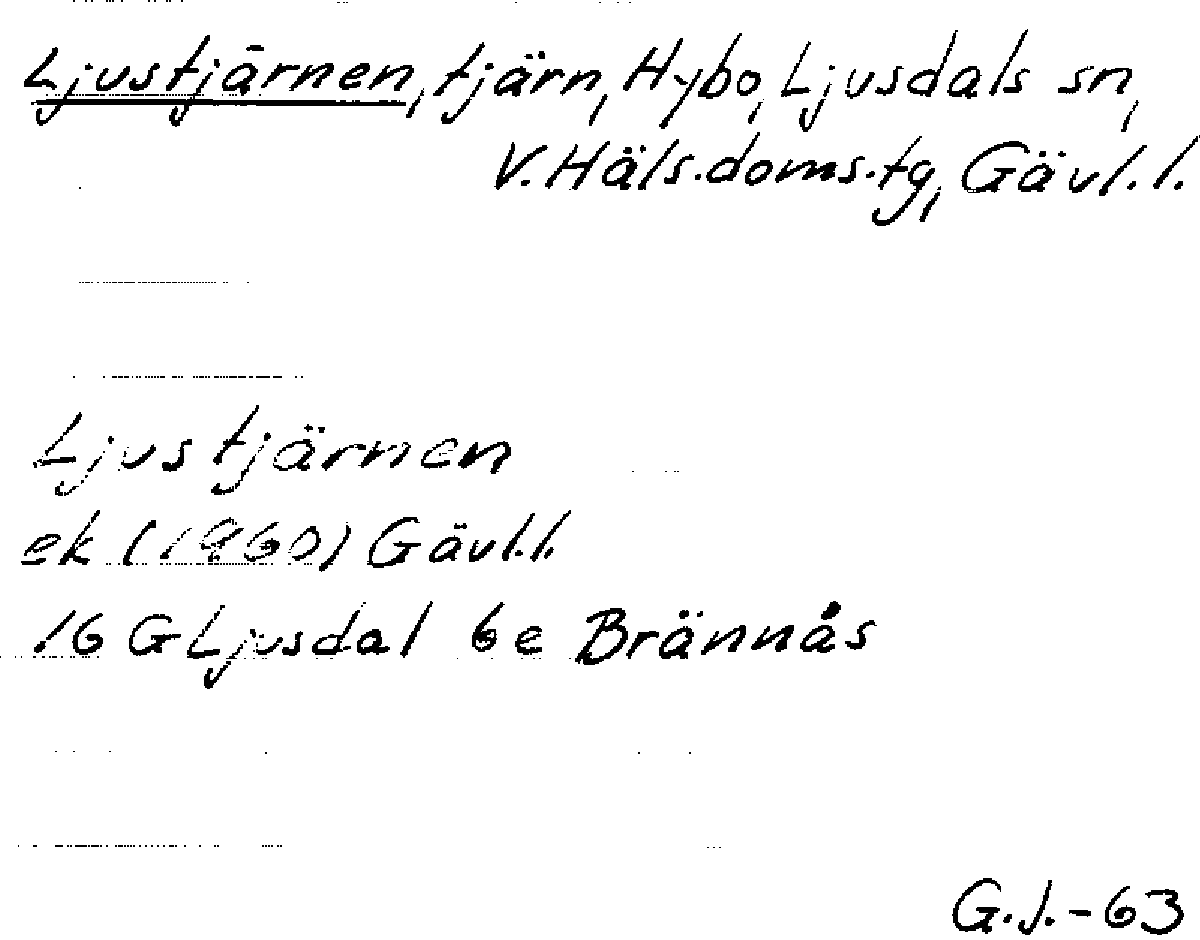 Ljustjärnen, tjärn, Hybo, Ljusdals sn,
V. Häls. doms. tg, Gävl. l.
Ljustjärnen
ek (1960) Gävl. l.
16 G Ljusdal 6e Brännås
G.J.-63